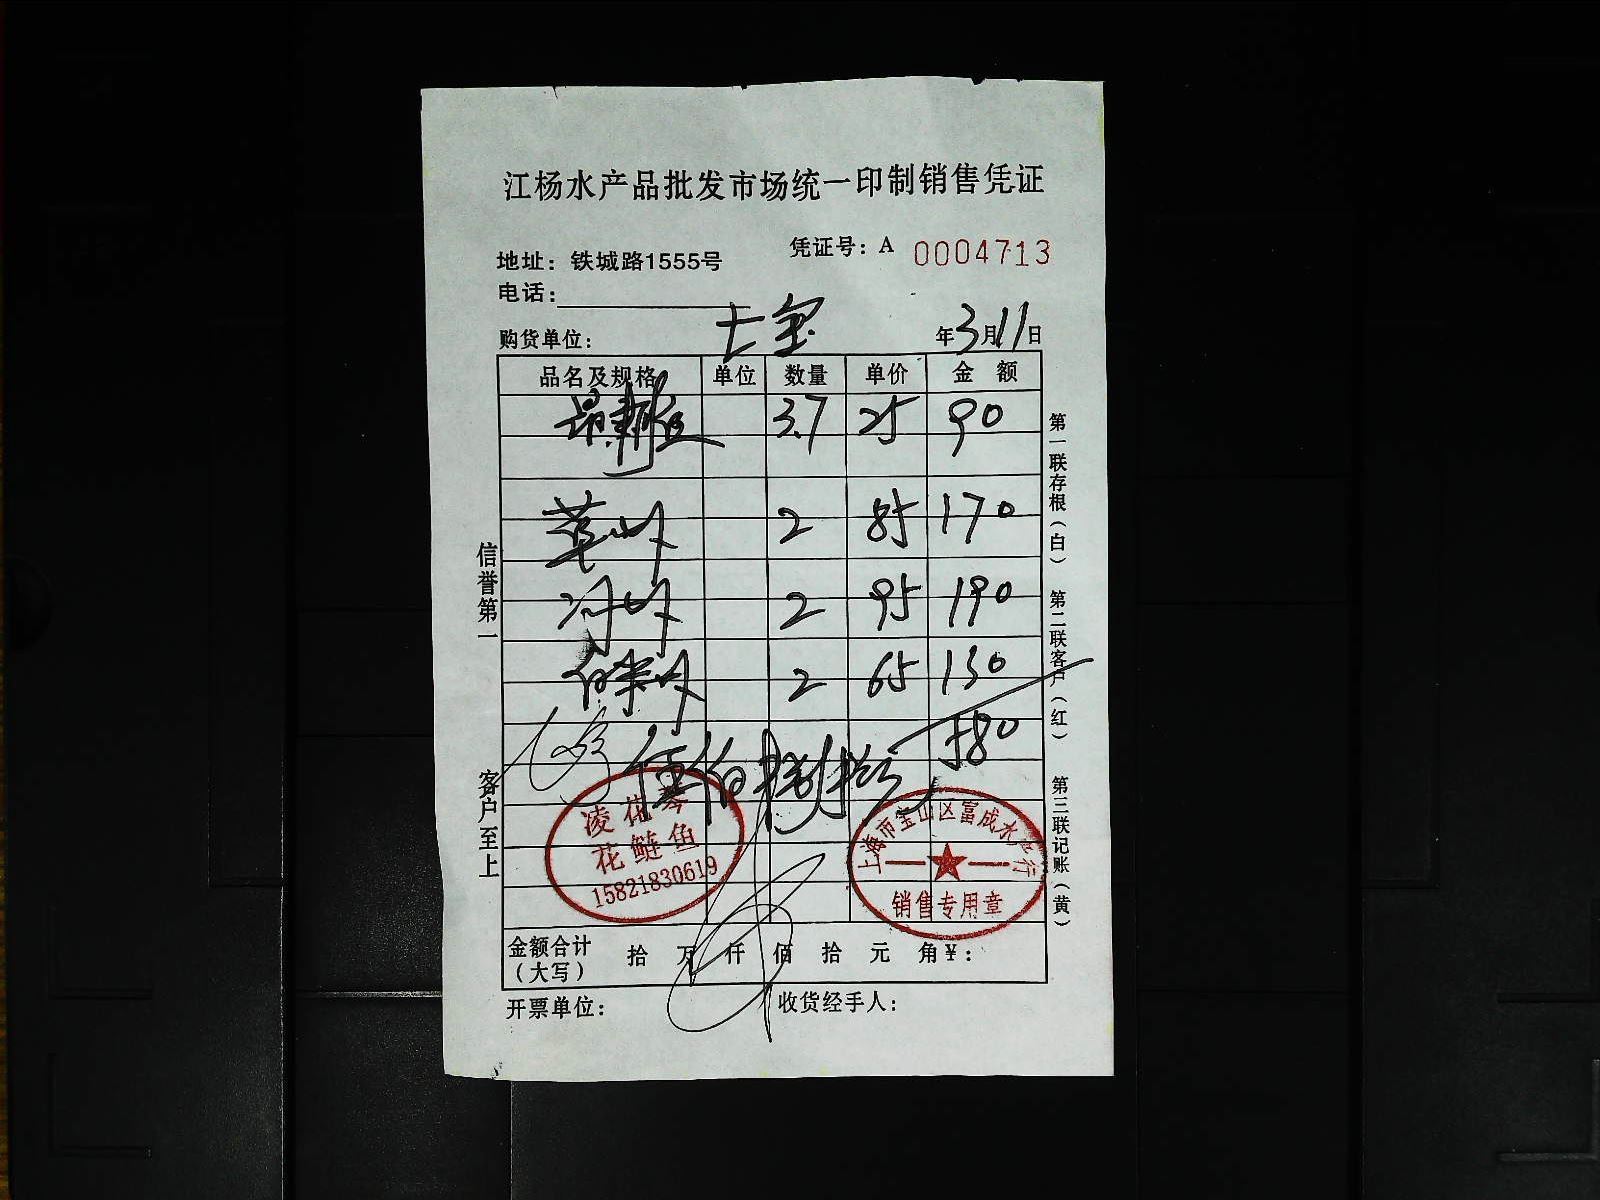 江杨水产品批发市场统一印制销售凭证
凭证号：A 0004713
地址：铁城路1555号
电话：
购货单位： 七宝 年3月11日
品名及规格 单位 数量 单价 金额
3.7 25 90
2 85 170
2 95 190
2 65 130
580
伍佰捌拾元
凌花琴
花鲢鱼
15821830619
上海市宝山区富成水产行
销售专用章
金额合计
（大写）
拾 万 仟 佰 拾 元 角¥：
开票单位： 收货经手人：
信誉第一
客户至上
第一联存根（白） 第二联客户（红） 第三联记账（黄）